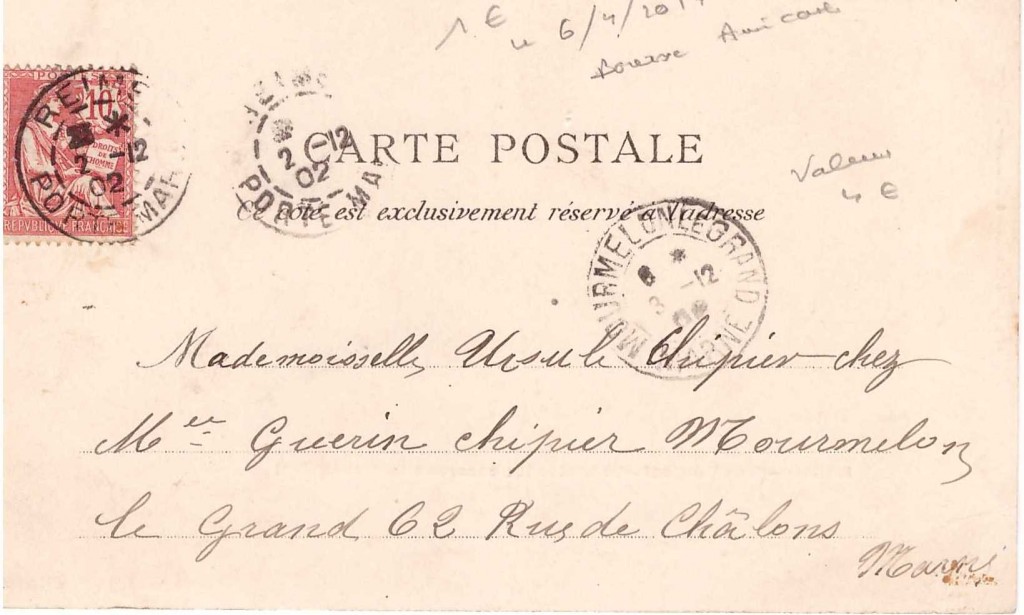 1 € le 6/4/201
bourse Amicale
POSTES
10
DROITS
DE
L'HOMME
REPVBLIQUE FRANÇAISE
REIMS PORTE MAR
2 -12
02
REIMS PORTE MAR
2 -12
02
CARTE POSTALE
Valeur
4 €
Ce côté est exclusivement réservé à l'adresse
MOURMELON LE GRAND MARNE
6 *
3 -12
Mademoisselle Ursule Chipier chez
Mer Guerin chipier Mourmelon
le Grand 62 Rue de Châlons
Marne